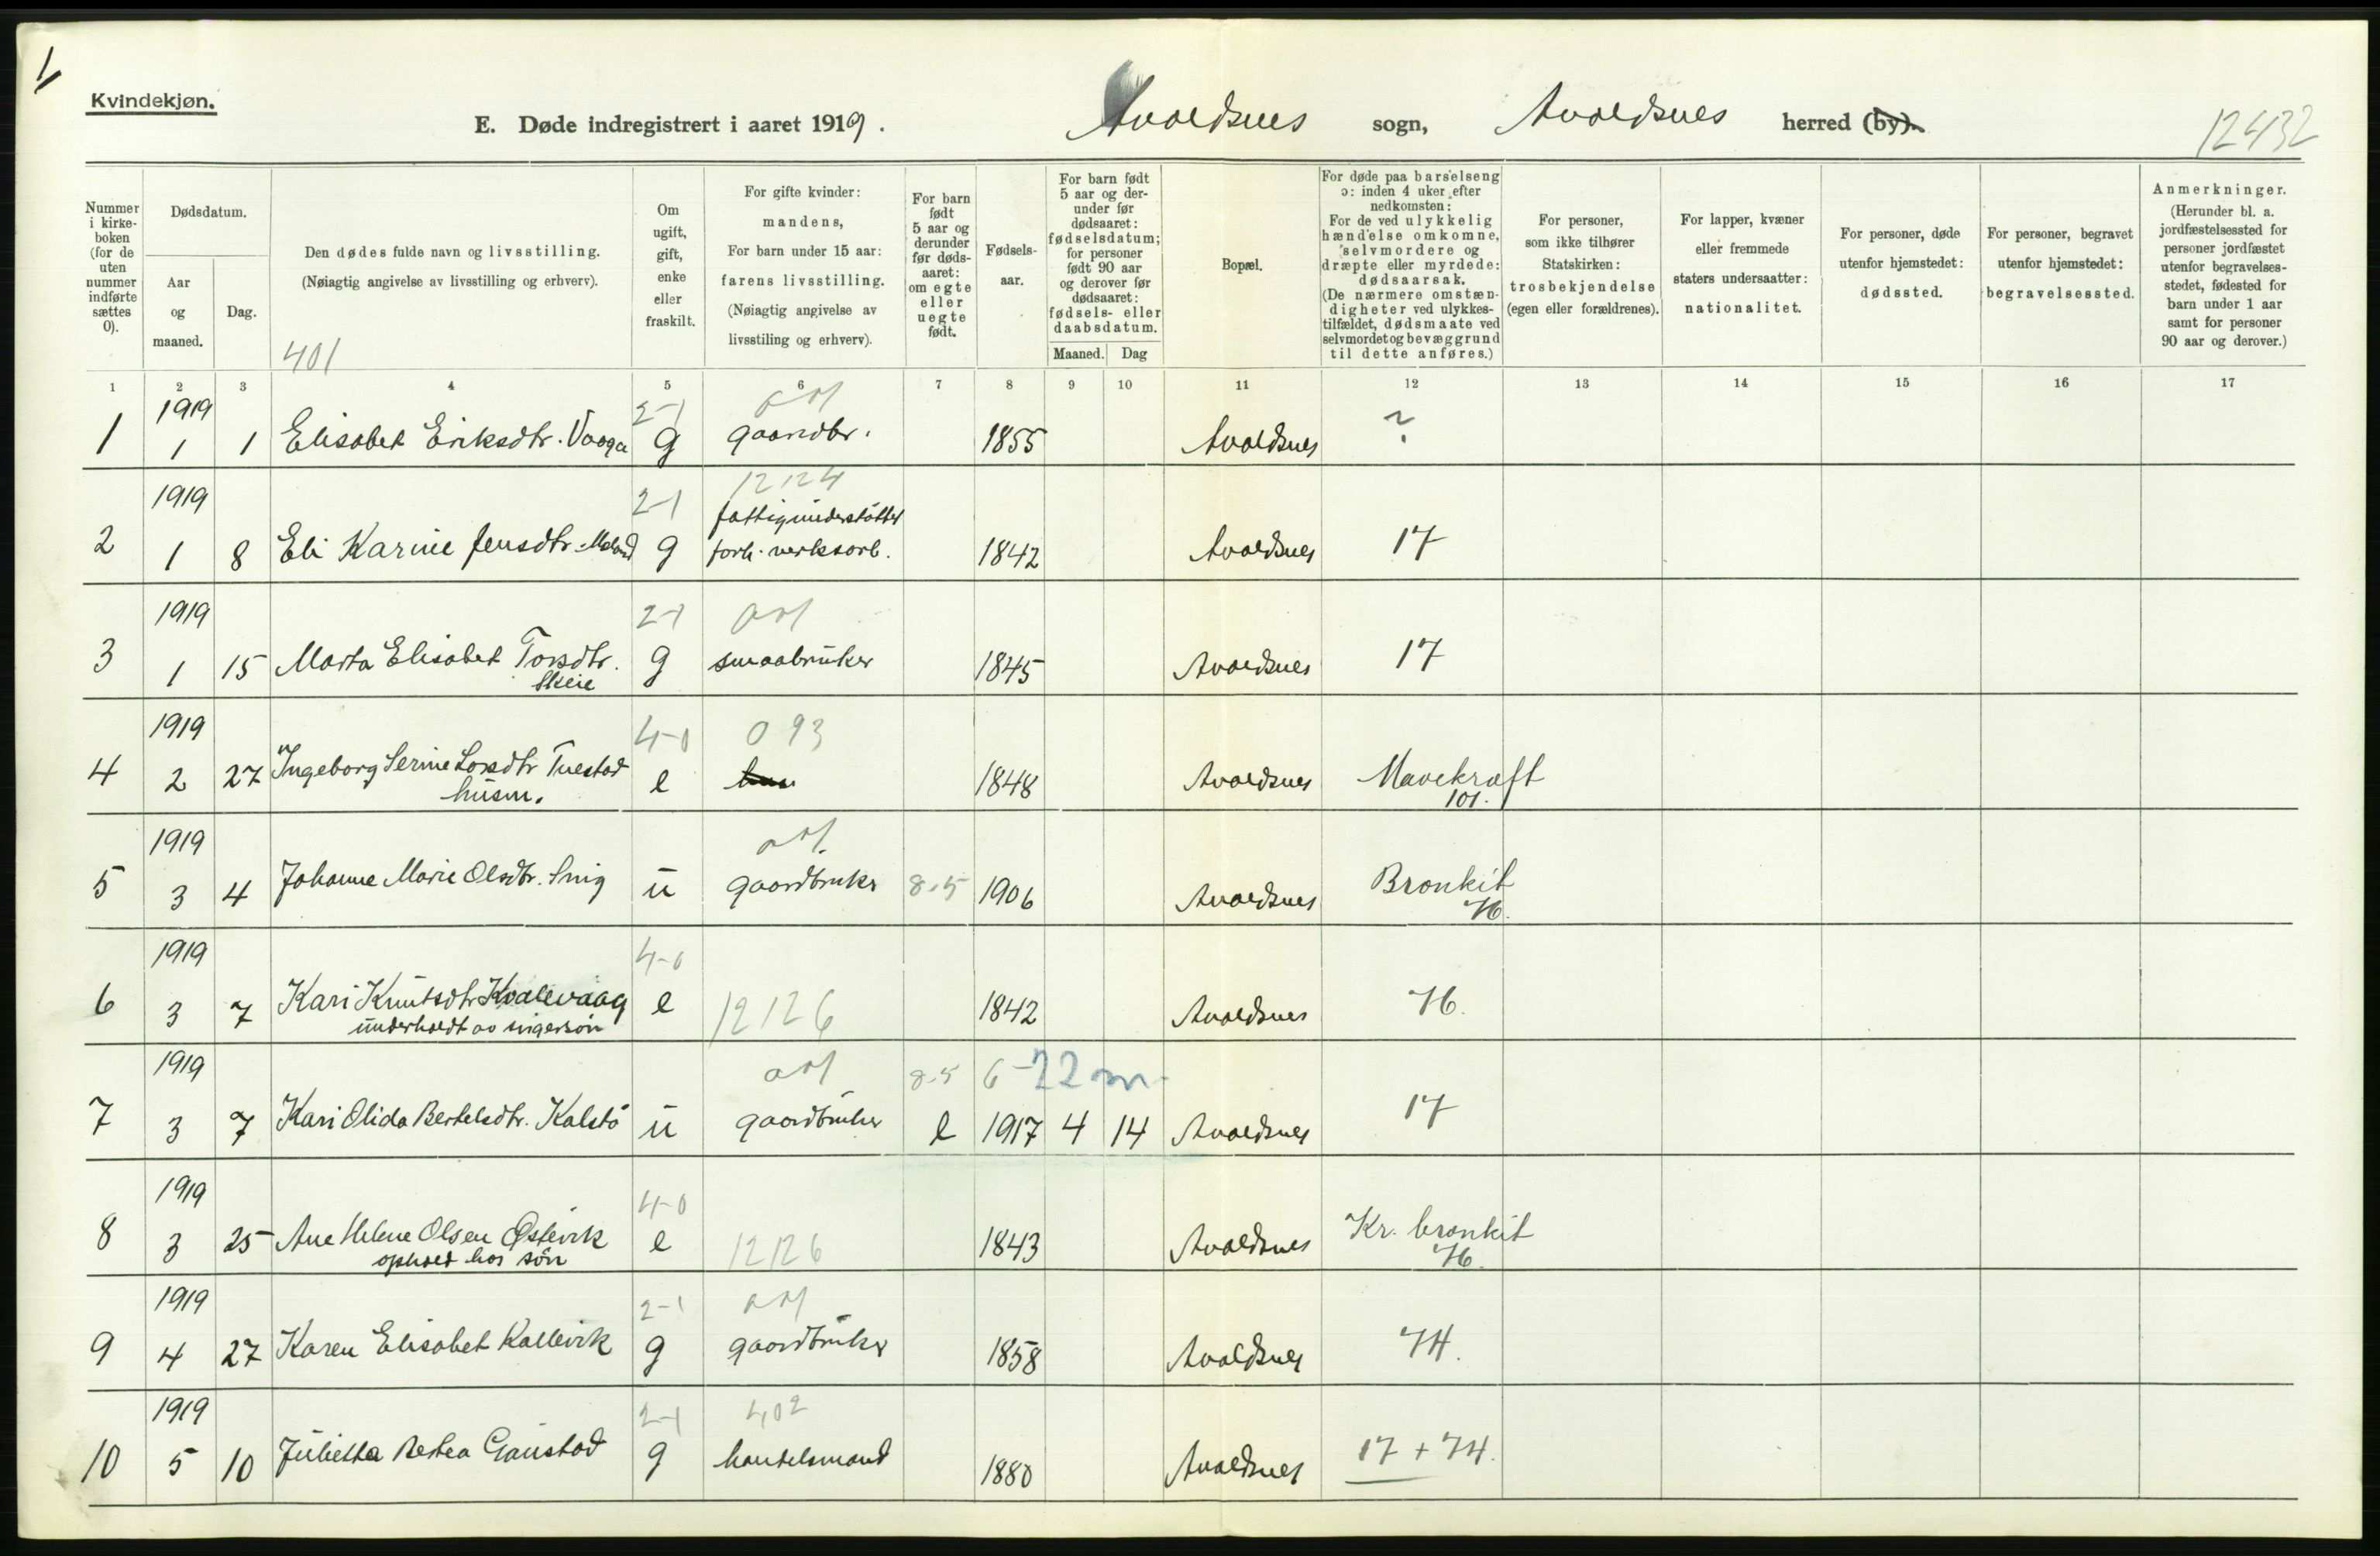 1
Kvindekjøn.
E. Døde indregistrert i aaret 1919. Avaldsnes sogn, Avaldsnes herred (by). 12432
Nummer i kirkeboken (for de uten nummer indførte sættes 0).
Dødsdatum.
Aar og maaned.
Dag.
Den dødes fulde navn og livsstilling.
(Nøiagtig angivelse av livsstilling og erhverv).
401
Om ugift, gift, enke eller fraskilt.
For gifte kvinder: mandens,
For barn under 15 aar: farens livsstilling.
(Nøiagtig angivelse av livsstiling og erhverv).
For barn født 5 aar og derunder før dødsaaret: om egte eller uegte født.
Fødselsaar.
For barn født 5 aar og derunder før dødsaaret: fødselsdatum; for personer født 90 aar og derover før dødsaaret: fødsels- eller daabsdatum.
Maaned. Dag
Bopæl.
For døde paa barselseng ɔ: inden 4 uker efter nedkomsten:
For de ved ulykkelig hændelse omkomne, selvmordere og dræpte eller myrdede: dødsaarsak.
(De nærmere omstændigheter ved ulykkestilfældet, dødsmaate ved selvmordet og bevæggrund til dette anføres.)
For personer, som ikke tilhører Statskirken: trosbekjendelse (egen eller forældrenes).
For lapper, kvæner eller fremmede staters undersaatter: nationalitet.
For personer, døde utenfor hjemstedet: dødssted.
For personer, begravet utenfor hjemstedet: begravelsessted.
Anmerkninger.
(Herunder bl. a. jordfæstelsessted for personer jordfæstet utenfor begravelsesstedet, fødested for barn under 1 aar samt for personer 90 aar og derover.)
1 2 3 4 5 6 7 8 9 10 11 12 13 14 15 16 17
1919 2-1
1 1 1 Elisabet Eriksdtr. Vaaga g gaardbr. 1855 Avaldsnes ?
1919 2-1 12124
fattigunderstöttet
2 1 8 Eli Karine Jensdtr. g forh. verksarb. 1842 Avaldsnes 17
1919 2-1
3 1 15 Marta Elisabet Torsdtr. g smaabruker 1845 Avaldsnes 17
Skeie
1919 4-0 093
4 2 27 Ingeborg Serine Larsdtr Tuestad e 1848 Avaldsnes Mavekraft
husm. 101.
1919
5 3 4 Johanne Marie Olsdtr. Snig u gaardbruker 8-5 1906 Avaldsnes Bronkit
76.
1919 4-0
6 3 7 Kari Knutsdtr Kvalevaag e 12126 1842 Avaldsnes 76.
underholdt av svigersön
1919 8-5 6-22 m
7 3 7 Kari Olida Bertelsdtr. Kalstö u gaardbruker e 1917 4 14 Avaldsnes 17
1919 4-0
8 3 25 Ane Helene Olsen Østevik e 12126 1843 Avaldsnes Kr. bronkit
ophold hos sön 76.
1919 2-1
9 4 27 Karen Elisabet Kallevik g gaardbruker 1858 Avaldsnes 74.
1919 2-1 402
10 5 10 Julietta Betea Gaustad g handelsmand 1880 Avaldsnes 17 + 74.